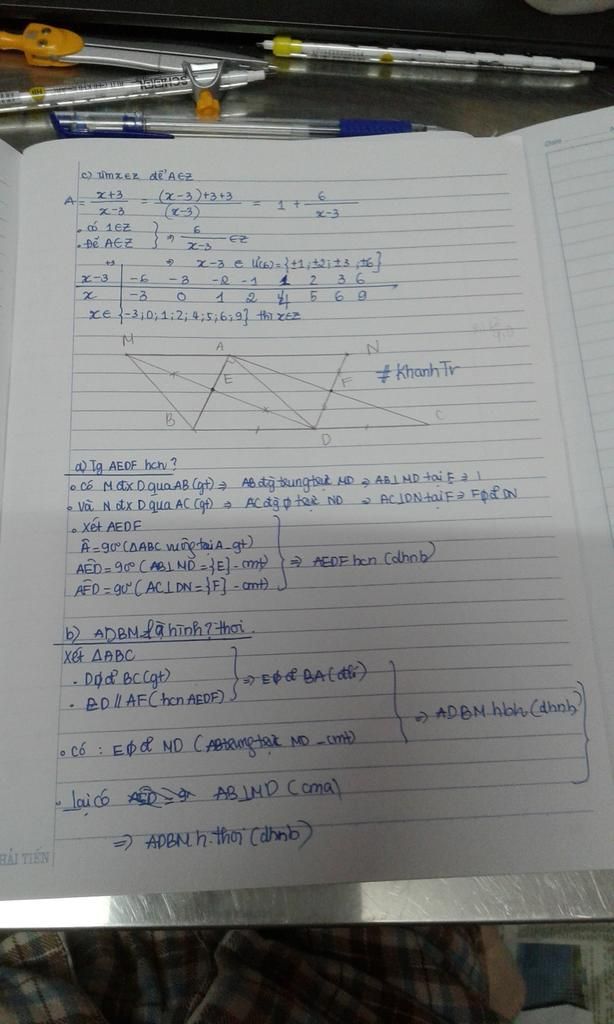 c) tìm x∈Z để A∈Z
A = x+3 / x-3 = (x-3)+3+3 / (x-3) = 1 + 6 / x-3
. có 1∈Z
. Để A∈Z } ⇒ 6 / x-3 ∈Z
⇒ x-3 ∈ Ư(6) = {±1; ±2; ±3; ±6}
x-3 -6 -3 -2 -1 1 2 3 6
x -3 0 1 2 4 5 6 9
x∈ {-3; 0; 1; 2; 4; 5; 6; 9} thì x∈Z
M A N
E F #KhanhTr
B D C
a) Tg AEDF hcn?
• có M đx D qua AB (gt) ⇒ AB đg trung trực MD ⇒ AB⊥MD tại E ⇒ 1
• Và N đx D qua AC (gt) ⇒ AC đg trực ND ⇒ AC⊥DN tại F ⇒ F DN
• Xét AEDF
Â = 90° (ΔABC vuông tại A_gt)
AED = 90° (AB⊥MD = {E} - cmt) ⇒ AEDF hcn (dhnb)
AFD = 90° (AC⊥DN = {F} - cmt)
b) ADBM là hình? thoi.
Xét ΔABC
• D BC (gt)
• ED // AF (hcn AEDF) ⇒ E BA
⇒ ADBM hbh (dhnb)
• có : E MD (AB trung trực MD - cmt)
• lại có AB⊥MD (cma)
⇒ ADBM h.thoi (dhnb)
HẢI TIẾN